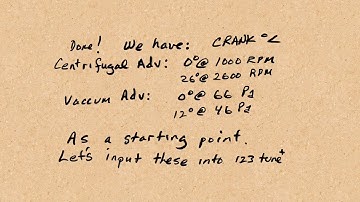 Done! We have: CRANK °∠
Centrifugal Adv: 0°@ 1000 RPM
26°@ 2600 RPM
Vaccum Adv: 0°@ 66 Pa
12°@ 46 Pa
As a starting point.
Let's input these into 123 tune+